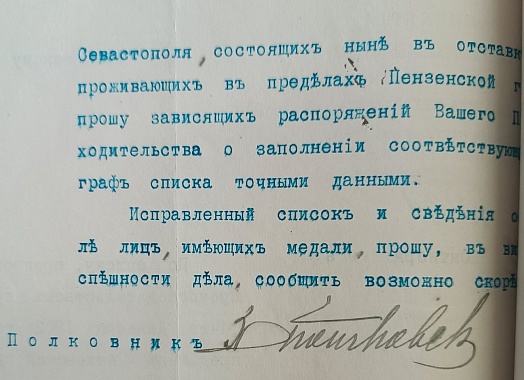 Севастополя, состоящихъ нынѣ въ отставк
проживающихъ въ предѣлахъ Пензенской г
прошу зависящихъ распоряженій Вашего П
ходительства о заполненіи соотвѣтствующ
графъ списка точными данными.
Исправленный списокъ и свѣдѣнія о
лѣ лицъ, имѣющихъ медали, прошу, въ ви
спѣшности дѣла, сообщить возможно скорѣ
Полковникъ